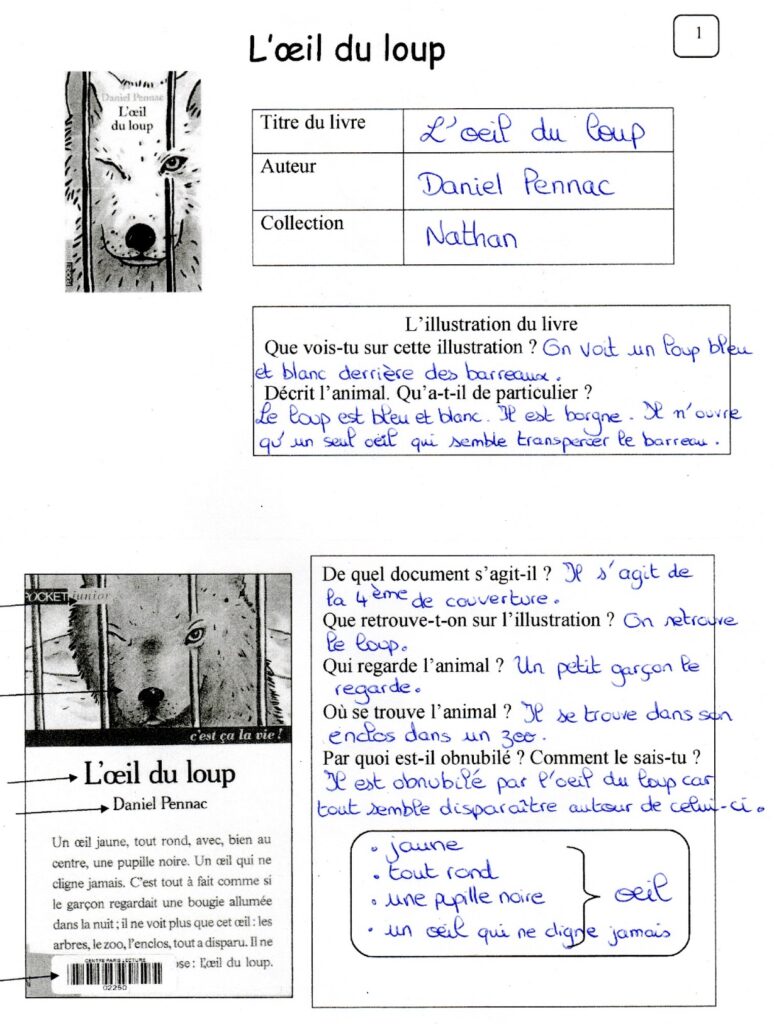 L'œil du loup
1
Daniel Pennac
L'œil
du loup
Titre du livre
L'oeil du loup
Auteur
Daniel Pennac
Collection
Nathan
L'illustration du livre
Que vois-tu sur cette illustration ? On voit un loup bleu
et blanc derrière des barreaux.
Décrit l'animal. Qu'a-t-il de particulier ?
Le loup est bleu et blanc. Il est borgne. Il n'ouvre
qu'un seul oeil qui semble transpercer le barreau.
POCKET junior
c'est ça la vie !
L'œil du loup
Daniel Pennac
Un œil jaune, tout rond, avec, bien au
centre, une pupille noire. Un œil qui ne
cligne jamais. C'est tout à fait comme si
le garçon regardait une bougie allumée
dans la nuit ; il ne voit plus que cet œil : les
arbres, le zoo, l'enclos, tout a disparu. Il ne
ose : L'œil du loup.
CENTRE PARIS LECTURE
02250
De quel document s'agit-il ? Il s'agit de
la 4ème de couverture.
Que retrouve-t-on sur l'illustration ? On retrouve
le loup.
Qui regarde l'animal ? Un petit garçon le
regarde.
Où se trouve l'animal ? Il se trouve dans son
enclos dans un zoo.
Par quoi est-il obnubilé ? Comment le sais-tu ?
Il est obnubilé par l'oeil du loup car
tout semble disparaître autour de celui-ci.
• jaune
• tout rond
• une pupille noire
• un oeil qui ne cligne jamais
oeil